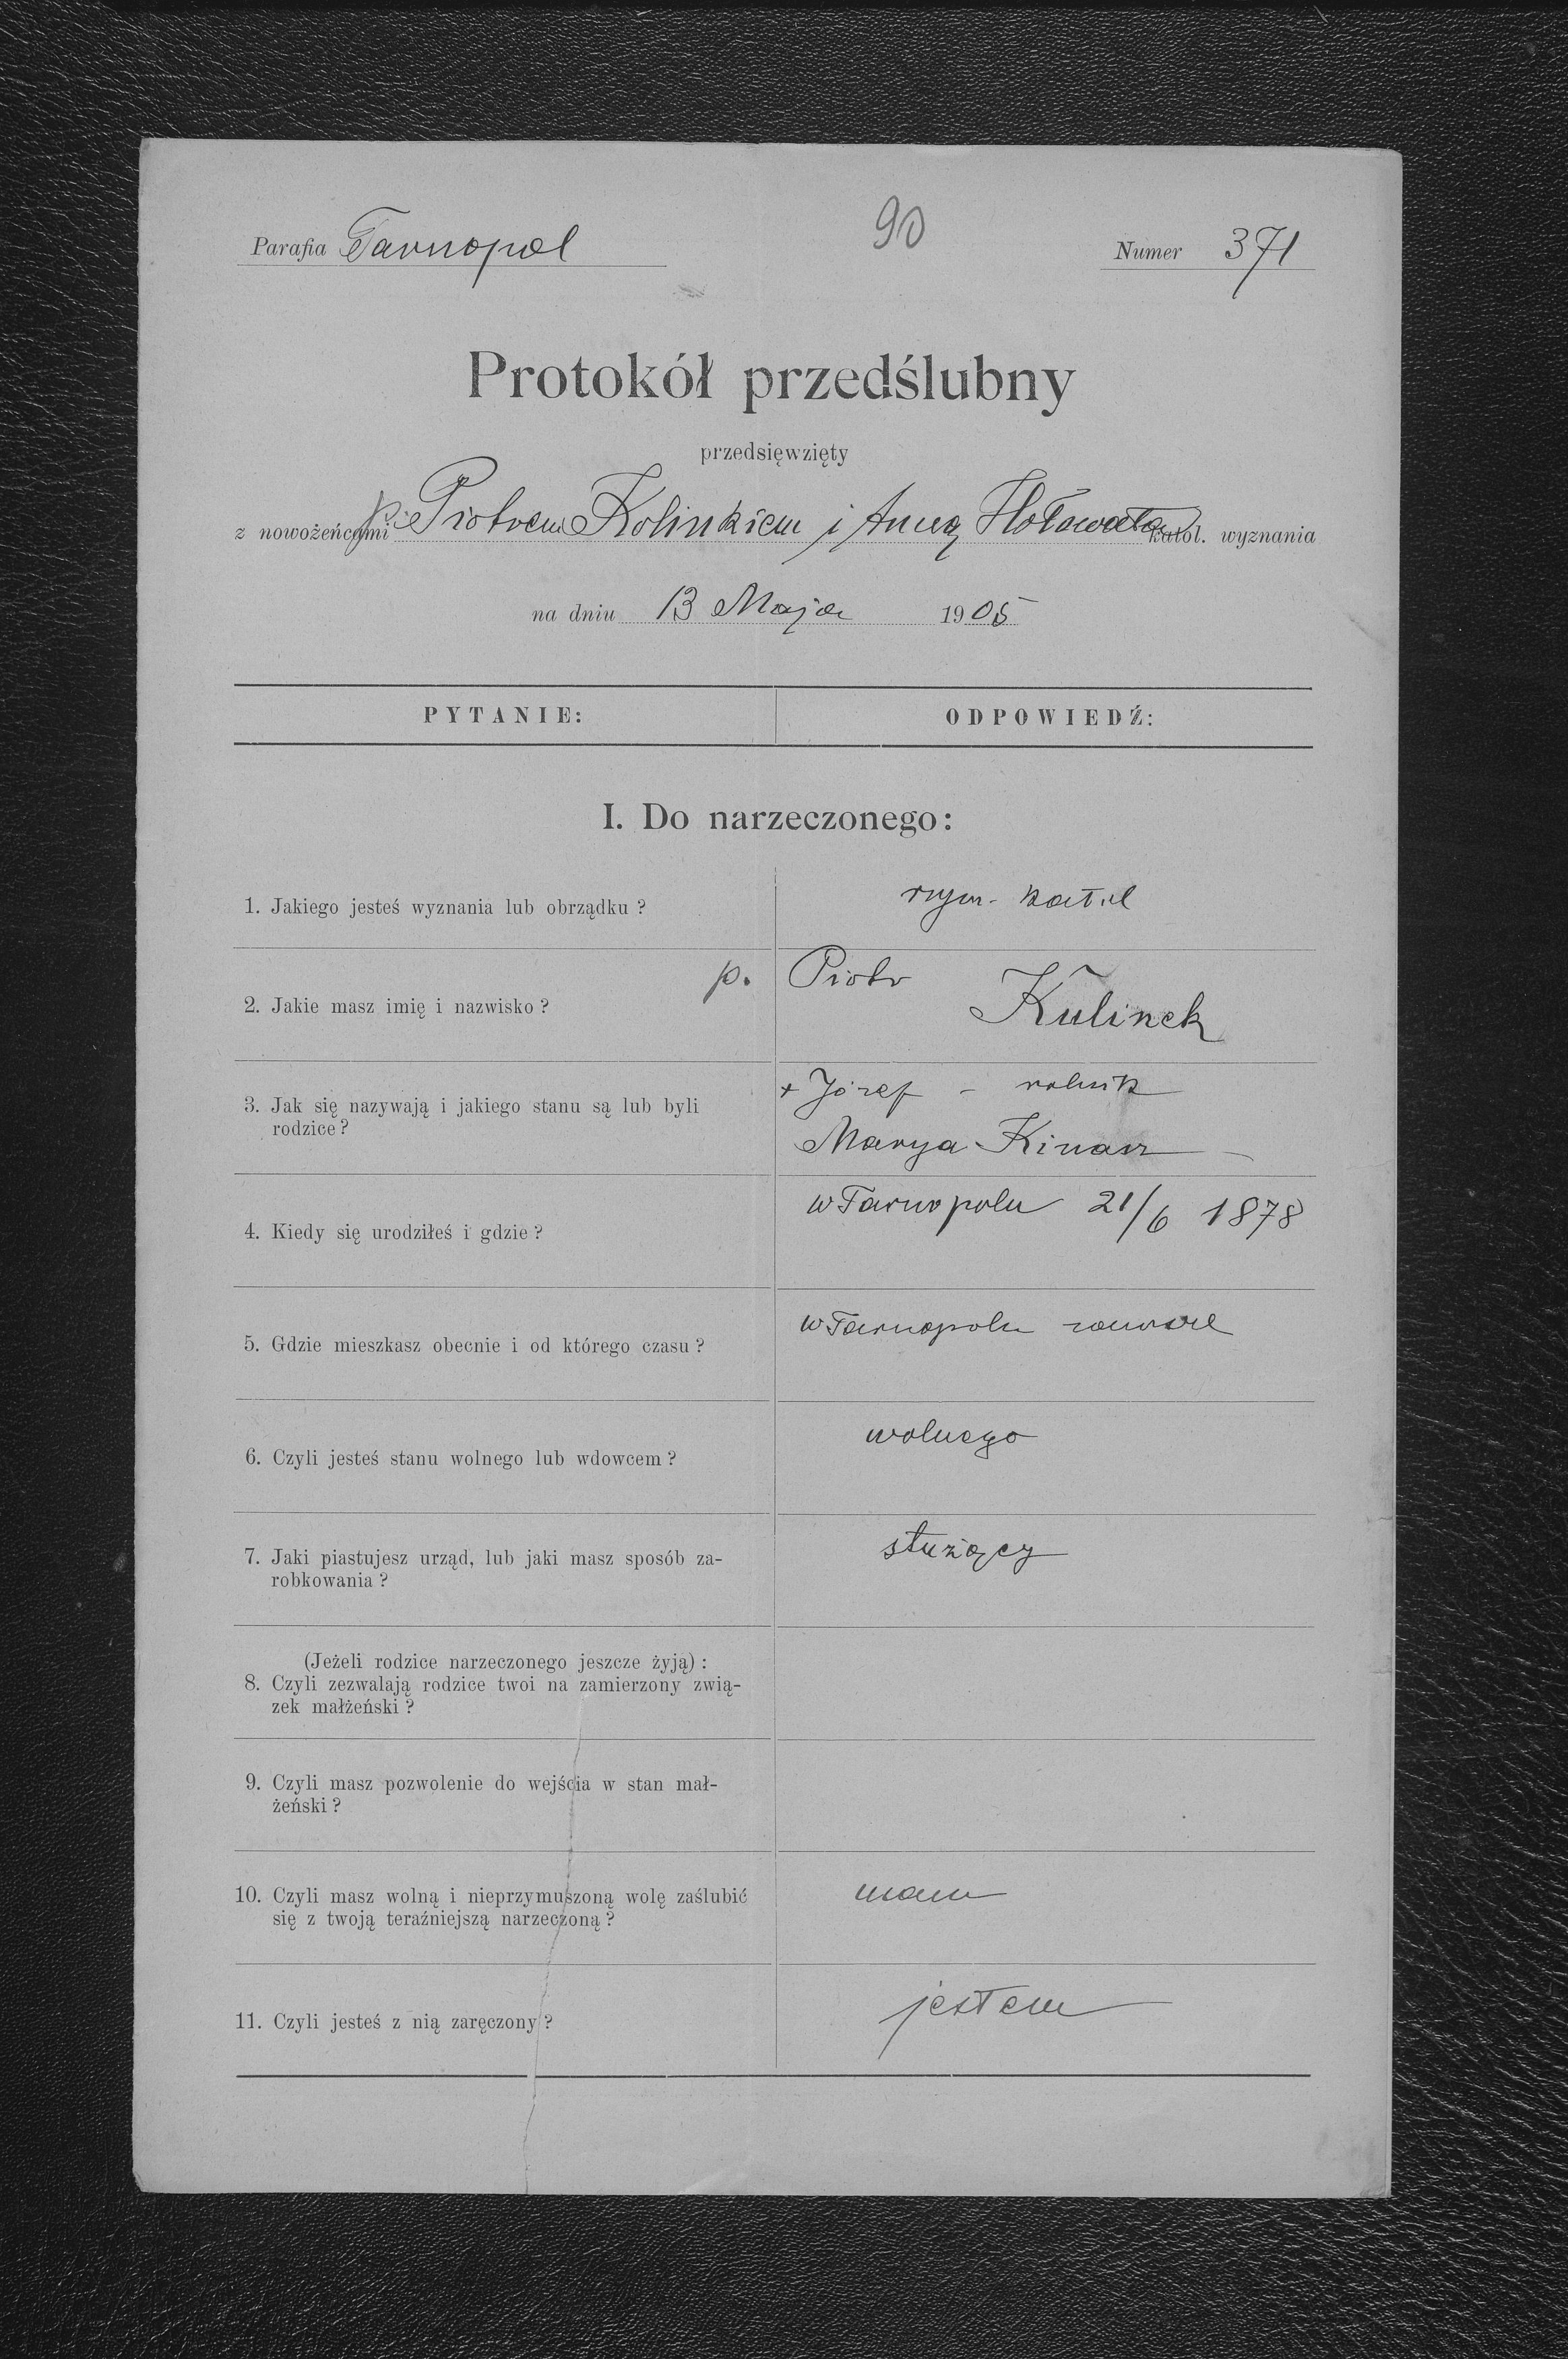 90
Parafia Tarnopol Numer 371
Protokół przedślubny
przedsięwzięty
z nowożeńcami p. Piotrem Kolinkiem i Anną Hołowatą katol. wyznania
na dniu 13 Maja 1905
PYTANIE: ODPOWIEDŹ:
I. Do narzeczonego:
1. Jakiego jesteś wyznania lub obrządku? rzym. katol
p. Piotr
2. Jakie masz imię i nazwisko? Kulinek
+ Józef - rolnik
3. Jak się nazywają i jakiego stanu są lub byli
rodzice? Marya Kinasz -
w Tarnopolu 21/6 1878
4. Kiedy się urodziłeś i gdzie?
w Tarnopolu zawsze
5. Gdzie mieszkasz obecnie i od którego czasu?
wolnego
6. Czyli jesteś stanu wolnego lub wdowcem?
służący
7. Jaki piastujesz urząd, lub jaki masz sposób za-
robkowania?
(Jeżeli rodzice narzeczonego jeszcze żyją):
8. Czyli zezwalają rodzice twoi na zamierzony zwią-
zek małżeński?
9. Czyli masz pozwolenie do wejścia w stan mał-
żeński?
10. Czyli masz wolną i nieprzymuszoną wolę zaślubić mam
się z twoją teraźniejszą narzeczoną?
jestem
11. Czyli jesteś z nią zaręczony?